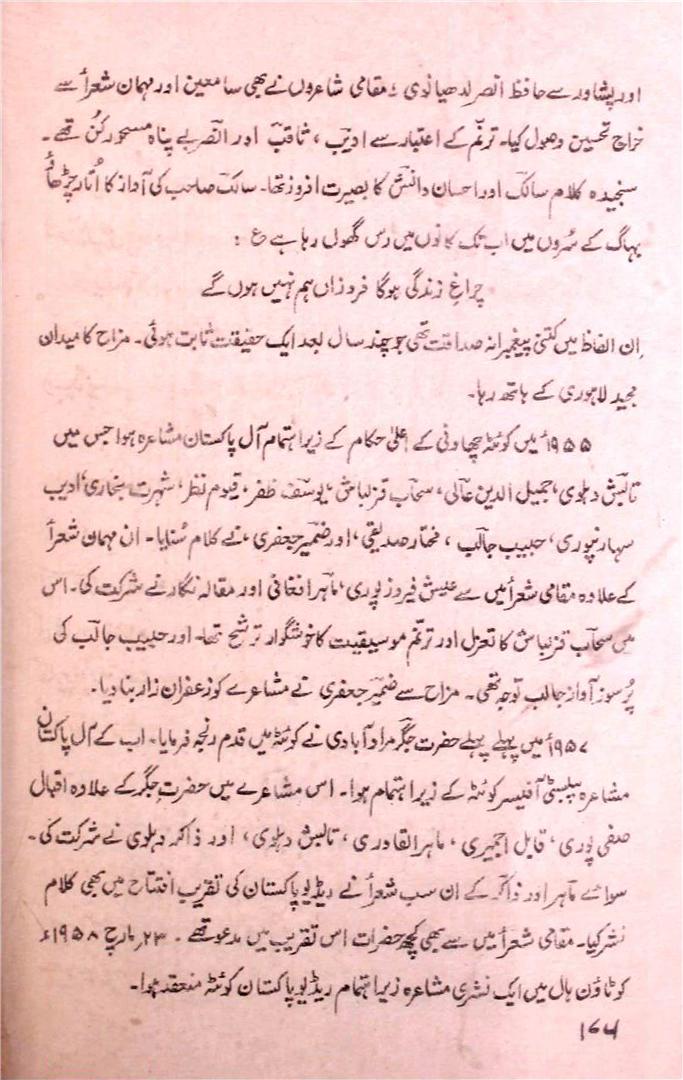 اور پشاور سے حافظ انصر لدھیانوی ؛ مقامی شاعروں نے بھی سامعین اور مہمان شعرأ سے
خراج تحسین وصول کیا۔ ترنّم کے اعتبار سے ادیب ، ثاقب اور انصر بے پناہ مسحور کُن تھے۔
سنجیدہ کلام سالک اور احسان دانش کا بصیرت افروز تھا۔ سالک صاحب کی آواز کا اُتار چڑھاؤ
بہاگ کے سُروں میں اب تک کانوں میں رس گھول رہا ہے ع :
چراغِ زندگی ہوگا فروزاں ہم نہیں ہوں گے
اِن الفاظ میں کتنی پیغمبرانہ صداقت تھی جو چند سال بعد ایک حقیقت ثابت ہوئی۔ مزاح کا میدان
مجید لاہوری کے ہاتھ رہا۔
۱۹۵۵ٔ میں کوئٹہ چھاونی کے اعلیٰ حکام کے زیر اہتمام آل پاکستان مشاعرہ ہوا جس میں
تابش دہلوی، جمیل الدین عالی، سحاب قزلباش، یوسف ظفر، قیوم نظر، شہرت بخاری، ادیب
سہارنپوری، حبیب جالب ، مختار صدیقی، اور ضمیر جعفری، نے کلام سُنایا۔ ان مہمان شعرأ
کے علاوہ مقامی شعرأ میں سے عیش فیروز پوری، ماہر افغانی اور مقالہ نگار نے شرکت کی۔ اس
میں سحاب قزلباش کا تغزل اور ترنّم موسیقیت کا خوشگوار ترشح تھا۔ اور حبیب جالب کی
پُرسوز آواز جالب توجہ تھی۔ مزاح سے ضمیر جعفری نے مشاعرے کو زعفران زار بنا دیا۔
۱۹۵۷ٔ میں پہلے پہلے حضرت جگر مراد آبادی نے کوئٹہ میں قدم رنجہ فرمایا۔ اب کے آل پاکستان
مشاعرہ پبلسٹی آفیسر کوئٹہ کے زیر اہتمام ہوا۔ اس مشاعرے میں حضرتِ جگر کے علاوہ اقبال
صفی پوری، قابل اجمیری ، ماہر القادری ، تابش دہلوی، اور ذاکر دہلوی نے شرکت کی۔
سوائے ماہر اور ذاکر کے ان سب شعرأ نے ریڈیو پاکستان کی تقریب افتتاح میں بھی کلام
نشر کیا۔ مقامی شعرأ میں سے بھی کچھ حضرات اس تقریب میں مدعو تھے۔ ۲۳ مارچ ۱۹۵۸ء
کو ٹاؤن ہال میں ایک نشری مشاعرہ زیر اہتمام ریڈیو پاکستان کوئٹہ منعقد ہوا۔
۱۶۴